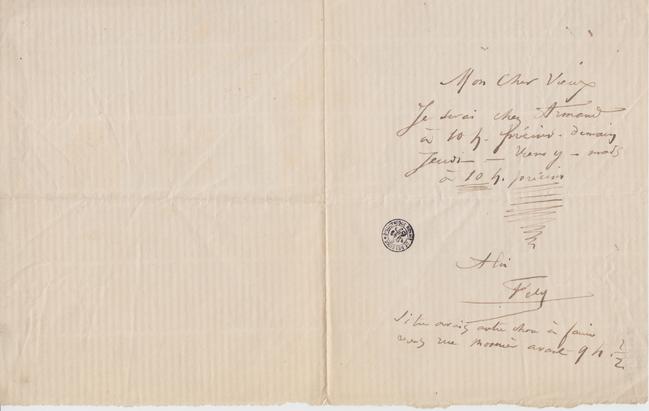 Mon Cher Vieux
Je serai chez Armand
à 10 h. précises. demain
Jeudi — Viens y — mais
à 10 h. précises
A toi
Fély
Si tu avais autre chose à faire
viens rue Mosnier avant 9 h. 1/2